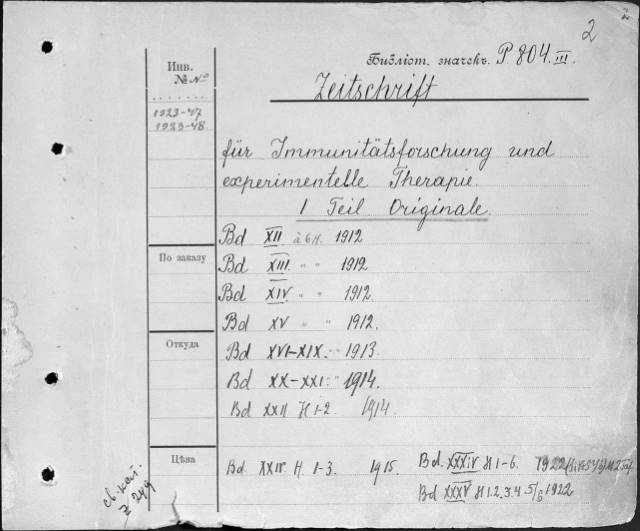 2
2
Библіот. значекъ. P. 804. III.
Инв.
№№
Zeitschrift
1923-47
1923-48
für Immunitätsforschung und
experimentelle Therapie.
1 Teil Originale.
Bd XII à 6 H. 1912
По заказу
Bd XIII " " 1912
Bd XIV " " 1912
Bd XV " " 1912.
Откуда
Bd XVI-XIX. " 1913
Bd XX-XXI " 1914.
Bd XXII H 1-2. 1914.
Цѣна
Bd XXIV. H. 1-3. 1915. Bd. XXXIV H 1-6. 1922
Bd XXXV H 1.2.3.4.5/6 1922
св. кат.
Z 249